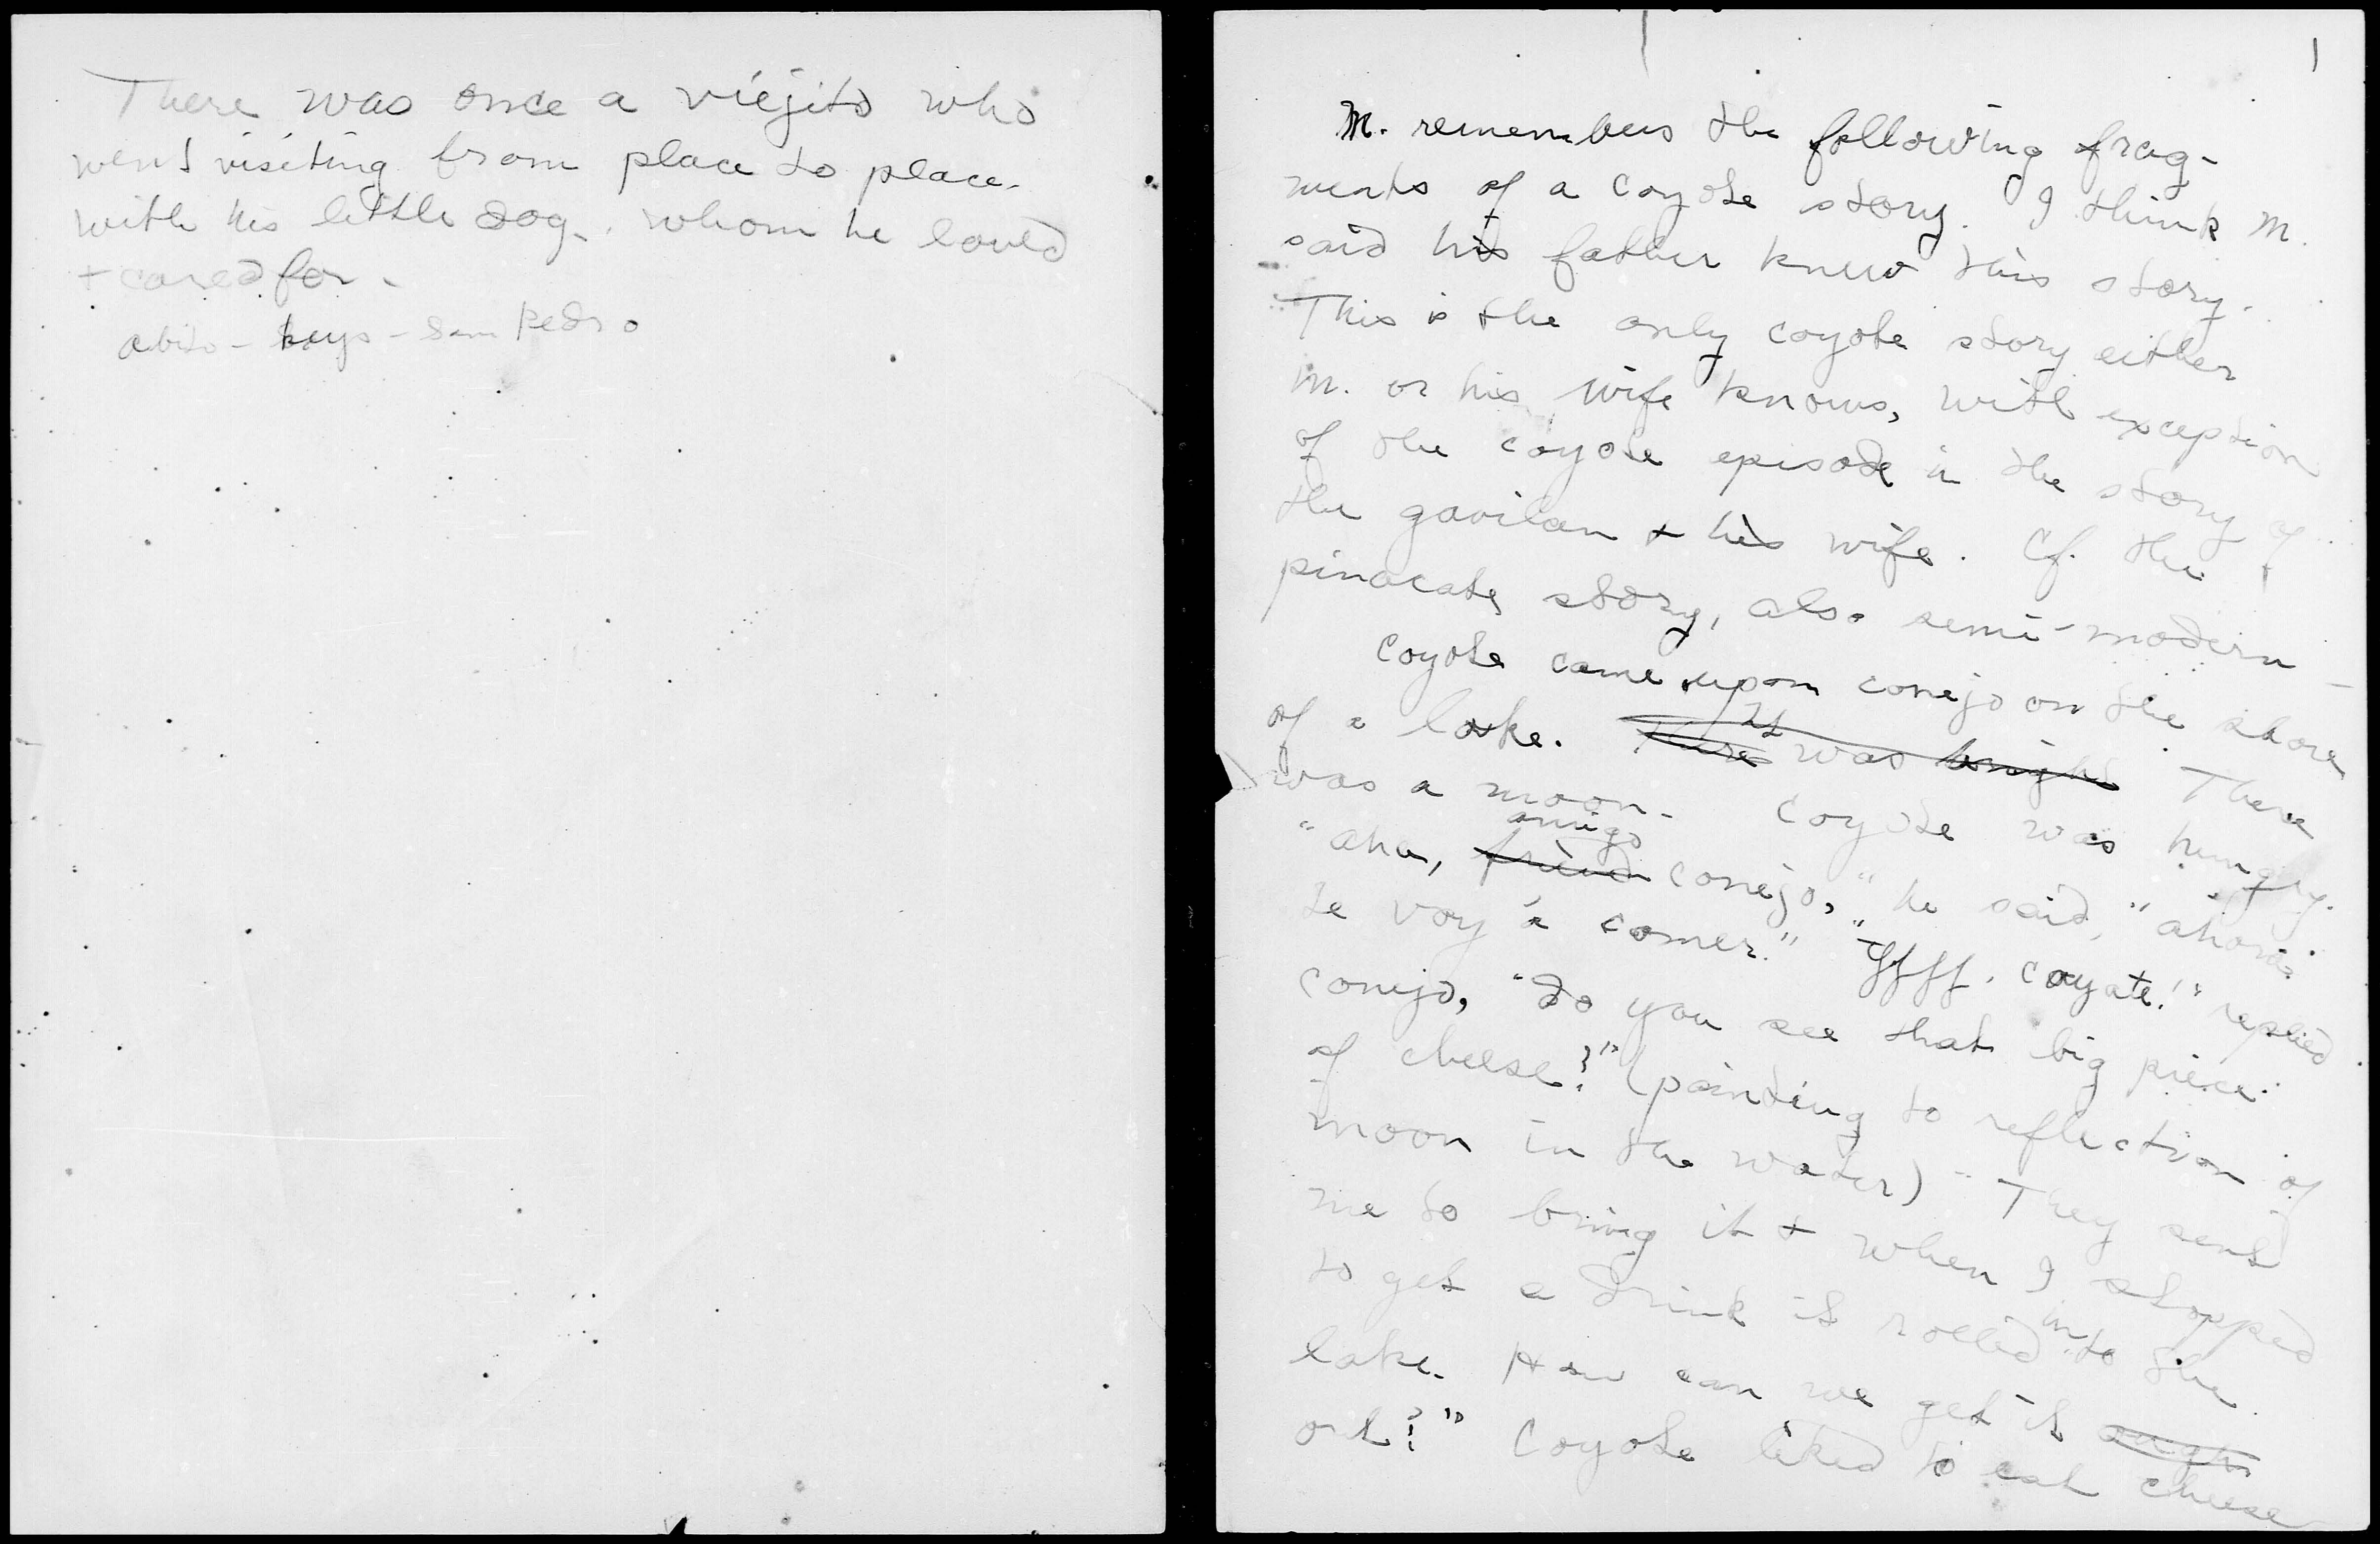 There was once a viejito who
went visiting from place to place
with his little dog, whom he loved
+ cared for.
abito - keys - San Pedro
1
M. remembers the following frag-
ments of a coyote story. I think M.
said his father knew this story.
This is the only coyote story either
M. or his wife knows, with exception
of the coyote episode in the story of
the gavilan + his wife. Cf. the
pinacate story, also semi-modern -
Coyote came upon conejo on the shore
of a lake. There It was bright There
was a moon. Coyote was hungry.
"aha, friend amigo conejo," he said, "ahora
te voy á comer." " coyote!" replied
conejo, "do you see that big piece
of cheese?" (pointing to reflection of
moon in the water) - They sent
me to bring it + when I stopped
to get a drink it rolled into the
lake. How can we get it
out?" Coyote liked to eat cheese